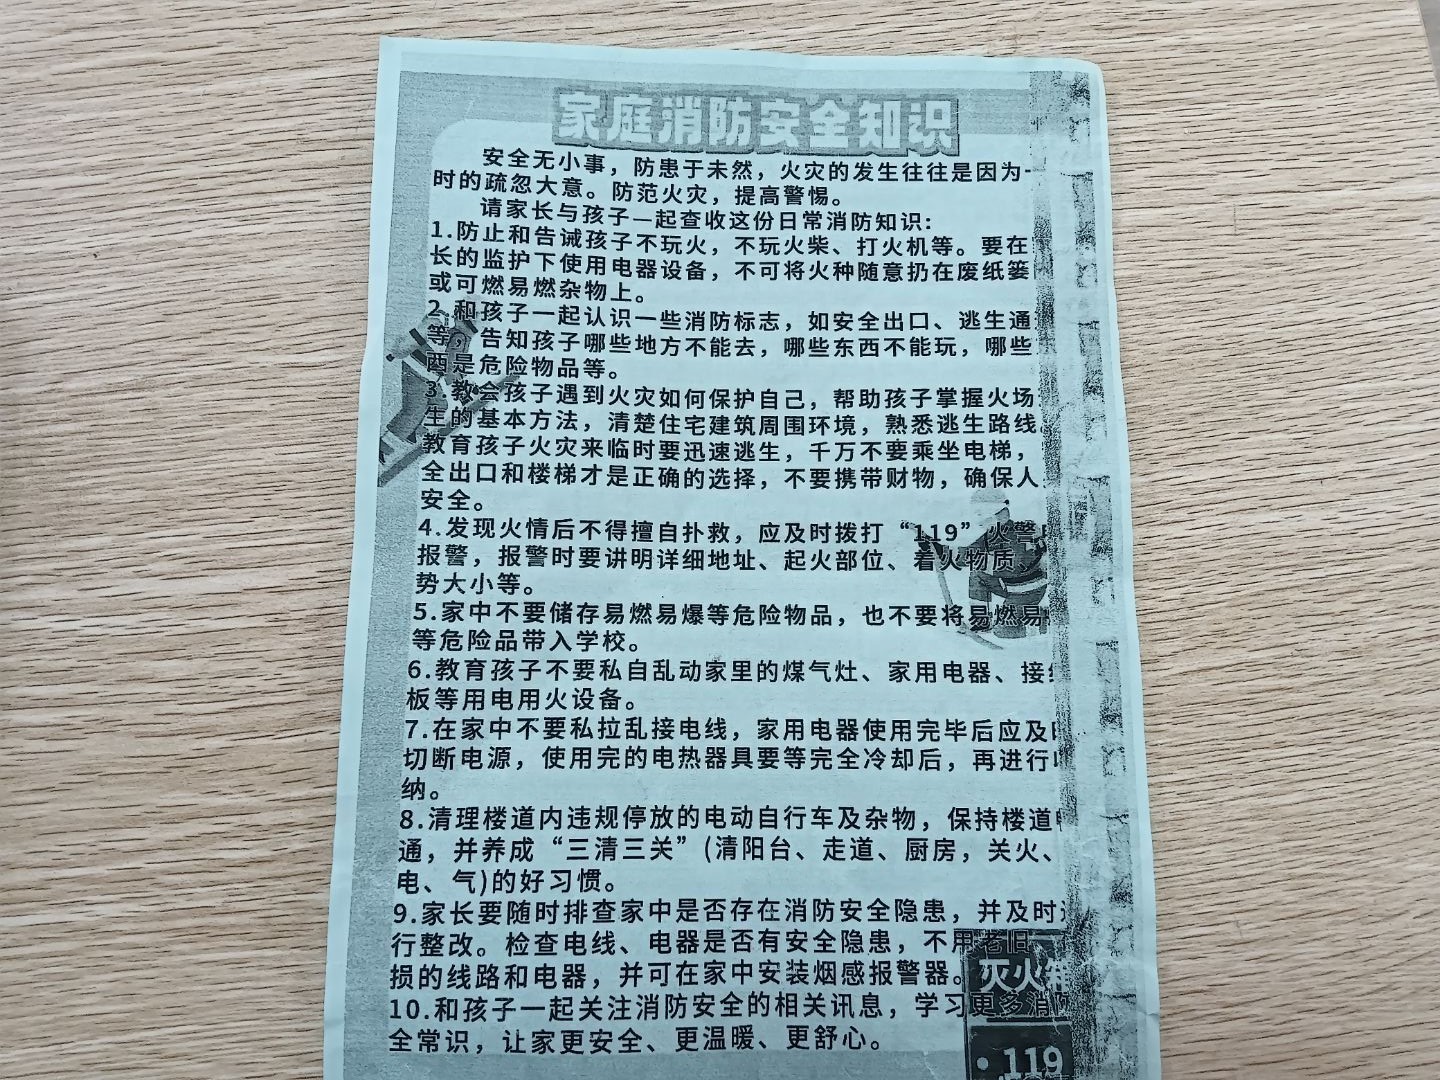 家庭消防安全知识
安全无小事，防患于未然，火灾的发生往往是因为一
时的疏忽大意。防范火灾，提高警惕。
请家长与孩子一起查收这份日常消防知识：
1.防止和告诫孩子不玩火，不玩火柴、打火机等。要在
长的监护下使用电器设备，不可将火种随意扔在废纸篓
或可燃易燃杂物上。
2.和孩子一起认识一些消防标志，如安全出口、逃生通
等，告知孩子哪些地方不能去，哪些东西不能玩，哪些
西是危险物品等。
3.教会孩子遇到火灾如何保护自己，帮助孩子掌握火场
生的基本方法，清楚住宅建筑周围环境，熟悉逃生路线
教育孩子火灾来临时要迅速逃生，千万不要乘坐电梯，
全出口和楼梯才是正确的选择，不要携带财物，确保人
安全。
4.发现火情后不得擅自扑救，应及时拨打“119”火警
报警，报警时要讲明详细地址、起火部位、着火物质、
势大小等。
5.家中不要储存易燃易爆等危险物品，也不要将易燃易
等危险品带入学校。
6.教育孩子不要私自乱动家里的煤气灶、家用电器、接
板等用电用火设备。
7.在家中不要私拉乱接电线，家用电器使用完毕后应及
切断电源，使用完的电热器具要等完全冷却后，再进行
纳。
8.清理楼道内违规停放的电动自行车及杂物，保持楼道
通，并养成“三清三关”(清阳台、走道、厨房，关火、
电、气)的好习惯。
9.家长要随时排查家中是否存在消防安全隐患，并及时
行整改。检查电线、电器是否有安全隐患，不用老旧
损的线路和电器，并可在家中安装烟感报警器。
10.和孩子一起关注消防安全的相关讯息，学习更多消
全常识，让家更安全、更温暖、更舒心。
灭火
119